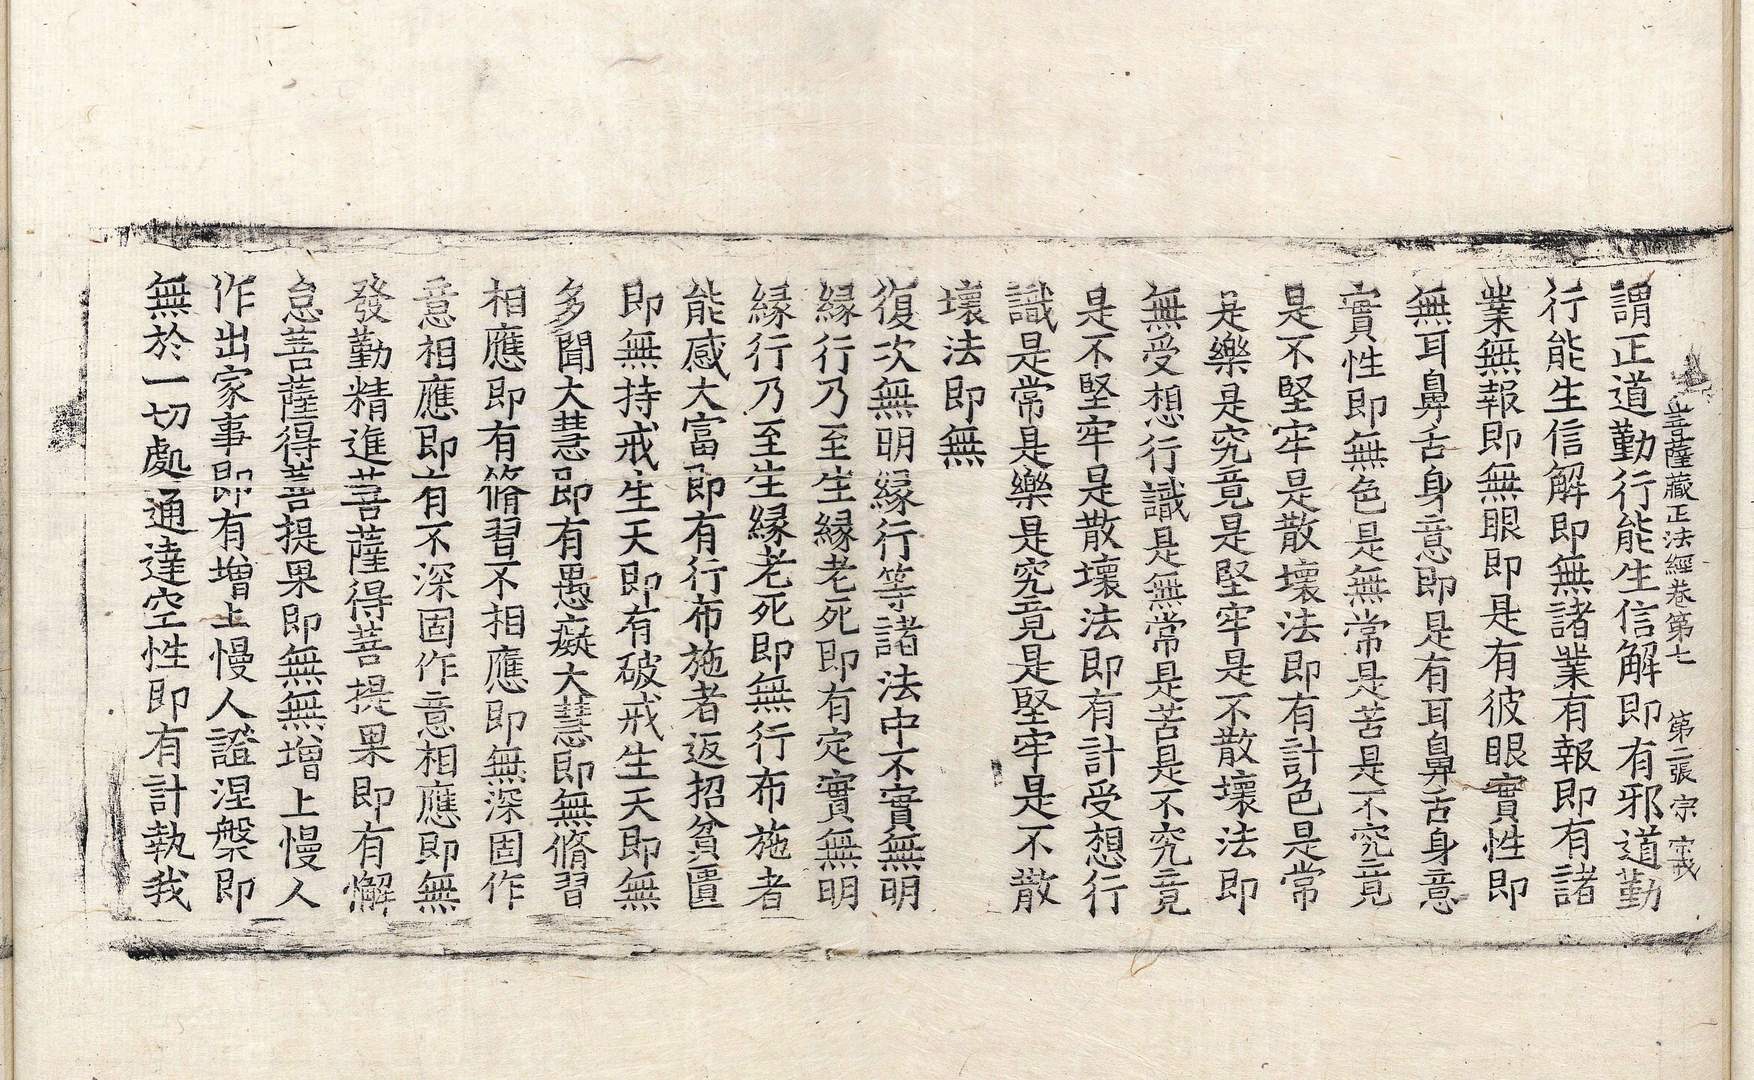 菩薩藏正法經卷第七　第二張　宗
謂正道勤行能生信解即有邪道勤
行能生信解即無諸業有報即有諸
業無報即無眼即是有彼眼實性即
無耳鼻舌身意即是有耳鼻舌身意
實性即無色是無常是苦是不究竟
是不堅牢是散壞法即有計色是常
是樂是究竟是堅牢是不散壞法即
無受想行識是無常是苦是不究竟
是不堅牢是散壞法即有計受想行
識是常是樂是究竟是堅牢是不散
壞法即無
復次無明緣行等諸法中不實無明
緣行乃至生緣老死即有定實無明
緣行乃至生緣老死即無行布施者
能感大富即有行布施者返招貧匱
即無持戒生天即有破戒生天即無
多聞大慧即有愚癡大慧即無脩習
相應即有脩習不相應即無深固作
意相應即有不深固作意相應即無
發勤精進菩薩得菩提果即有懈
怠菩薩得菩提果即無無增上慢人
作出家事即有增上慢人證涅槃即
無於一切處通達空性即有計執我